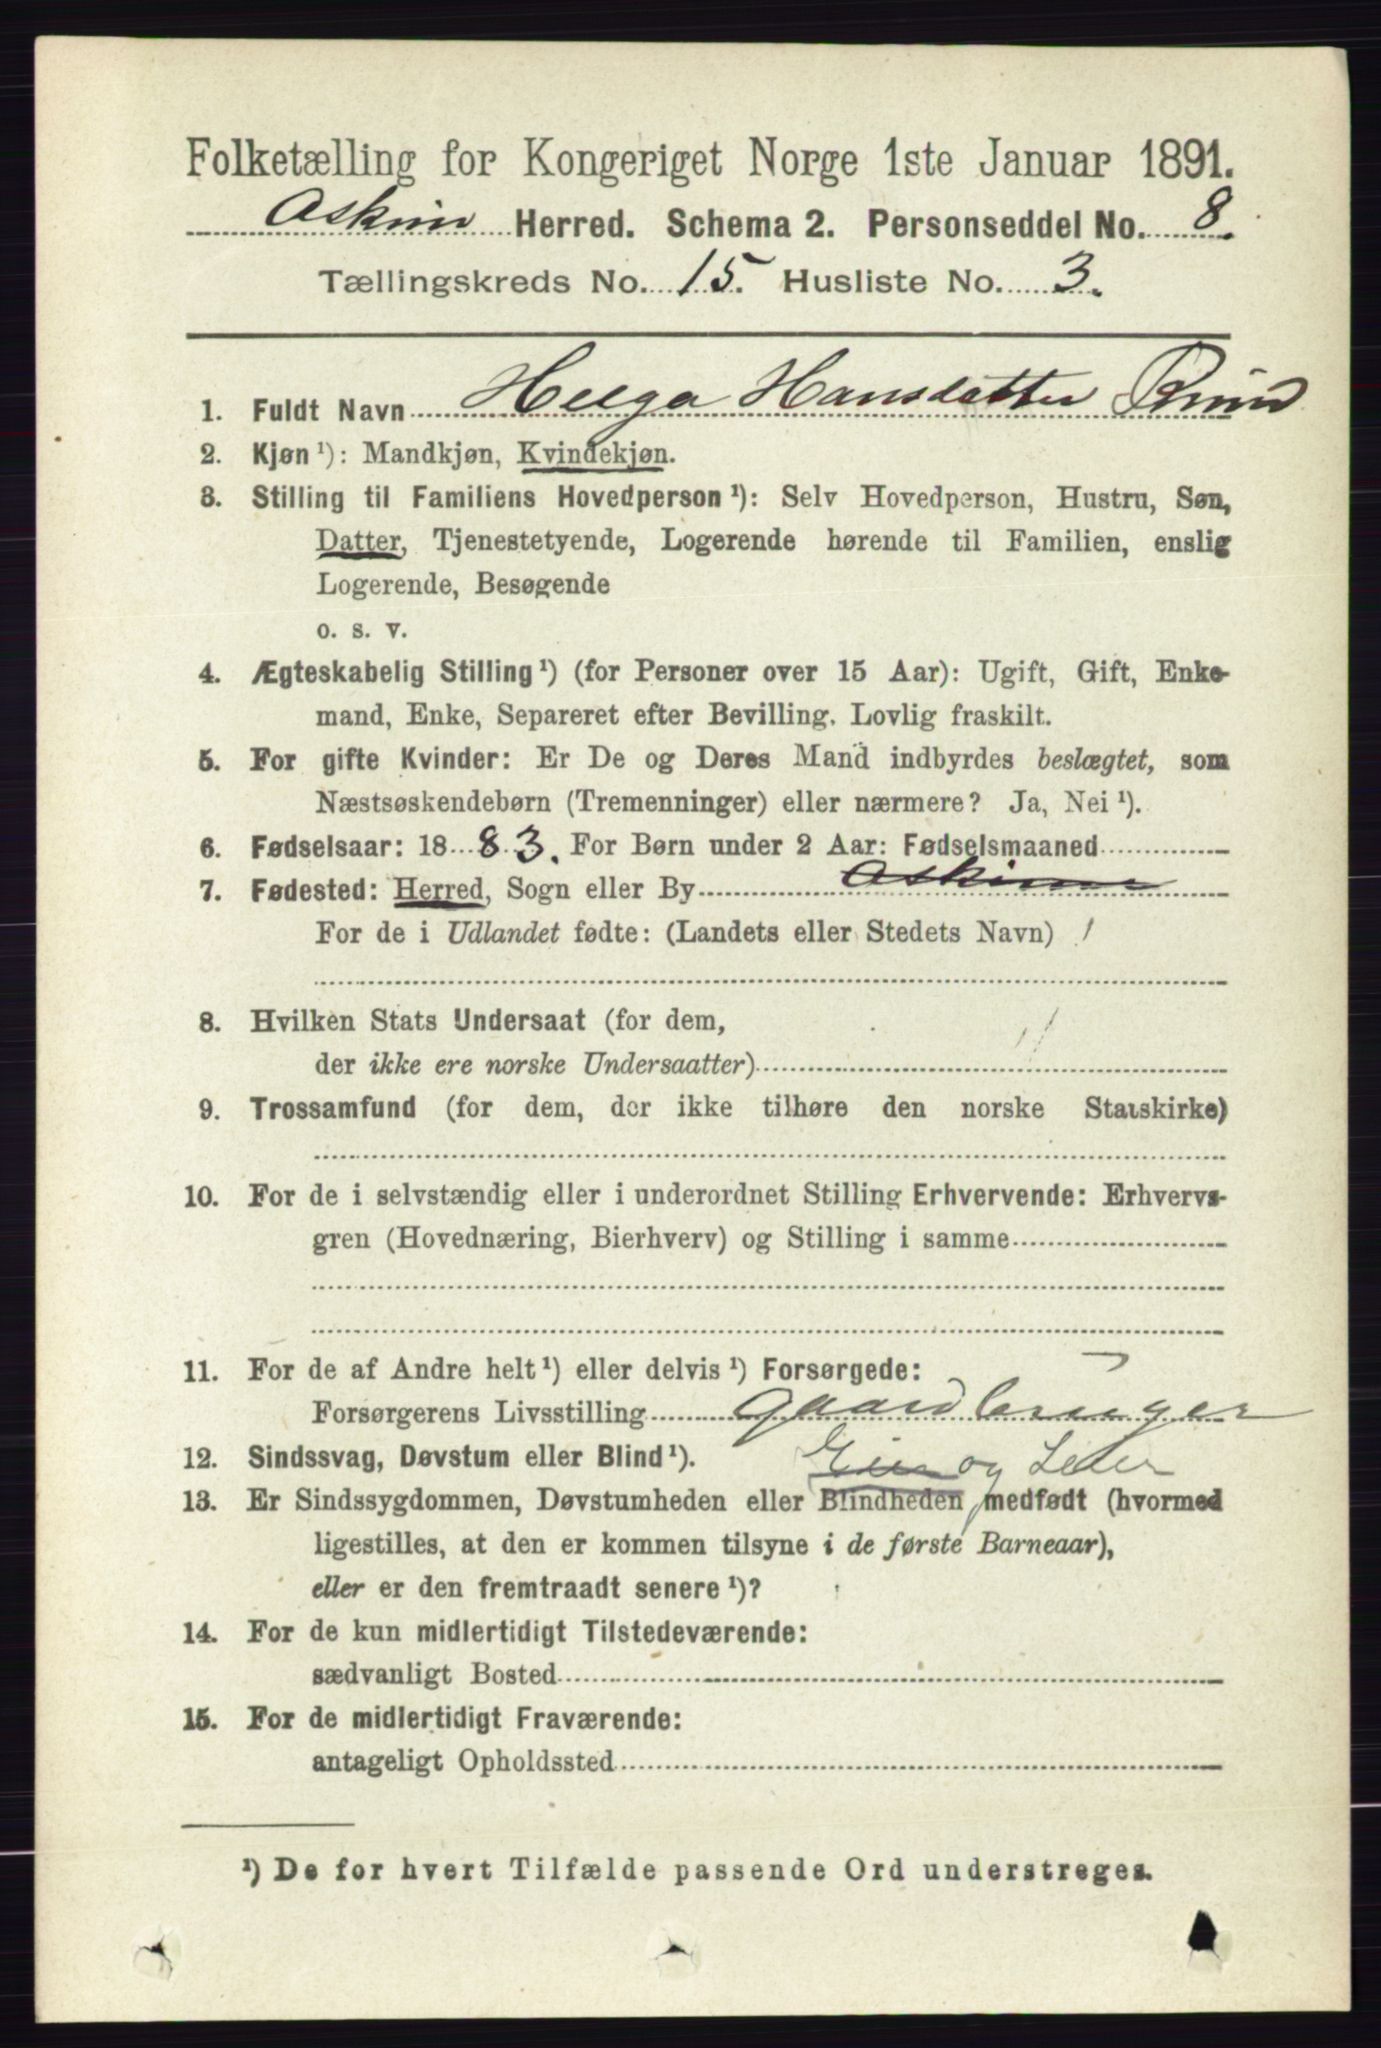 Folketælling for Kongeriget Norge 1ste Januar 1891.
Askim Herred. Schema 2. Personseddel No. 8.
Tællingskreds No. 15. Husliste No. 3.
1. Fuldt Navn Helga Hansdatter
2. Kjøn ¹): Mandkjøn, Kvindekjøn.
3. Stilling til Familiens Hovedperson ¹): Selv Hovedperson, Hustru, Søn,
Datter, Tjenestetyende, Logerende hørende til Familien, enslig
Logerende, Besøgende
o. s. v.
4. Ægteskabelig Stilling ¹) (for Personer over 15 Aar): Ugift, Gift, Enke-
mand, Enke, Separeret efter Bevilling. Lovlig fraskilt.
5. For gifte Kvinder: Er De og Deres Mand indbyrdes beslægtet, som
Næstsøskendebørn (Tremenninger) eller nærmere? Ja, Nei ¹).
6. Fødselsaar: 1883. For Børn under 2 Aar: Fødselsmaaned
7. Fødested: Herred, Sogn eller By Askim
For de i Udlandet fødte: (Landets eller Stedets Navn)
8. Hvilken Stats Undersaat (for dem,
der ikke ere norske Undersaatter)
9. Trossamfund (for dem, der ikke tilhøre den norske Statskirke)
10. For de i selvstændig eller i underordnet Stilling Erhvervende: Erhvervs-
gren (Hovednæring, Bierhverv) og Stilling i samme
11. For de af Andre helt ¹) eller delvis ¹) Forsørgede:
Forsørgerens Livsstilling Gaardbruger
12. Sindssvag, Døvstum eller Blind ¹). Eier og Leder
13. Er Sindssygdommen, Døvstumheden eller Blindheden medfødt (hvormed
ligestilles, at den er kommen tilsyne i de første Barneaar),
eller er den fremtraadt senere ¹)?
14. For de kun midlertidigt Tilstedeværende:
sædvanligt Bosted
15. For de midlertidigt Fraværende:
antageligt Opholdssted
¹) De for hvert Tilfælde passende Ord understreges.